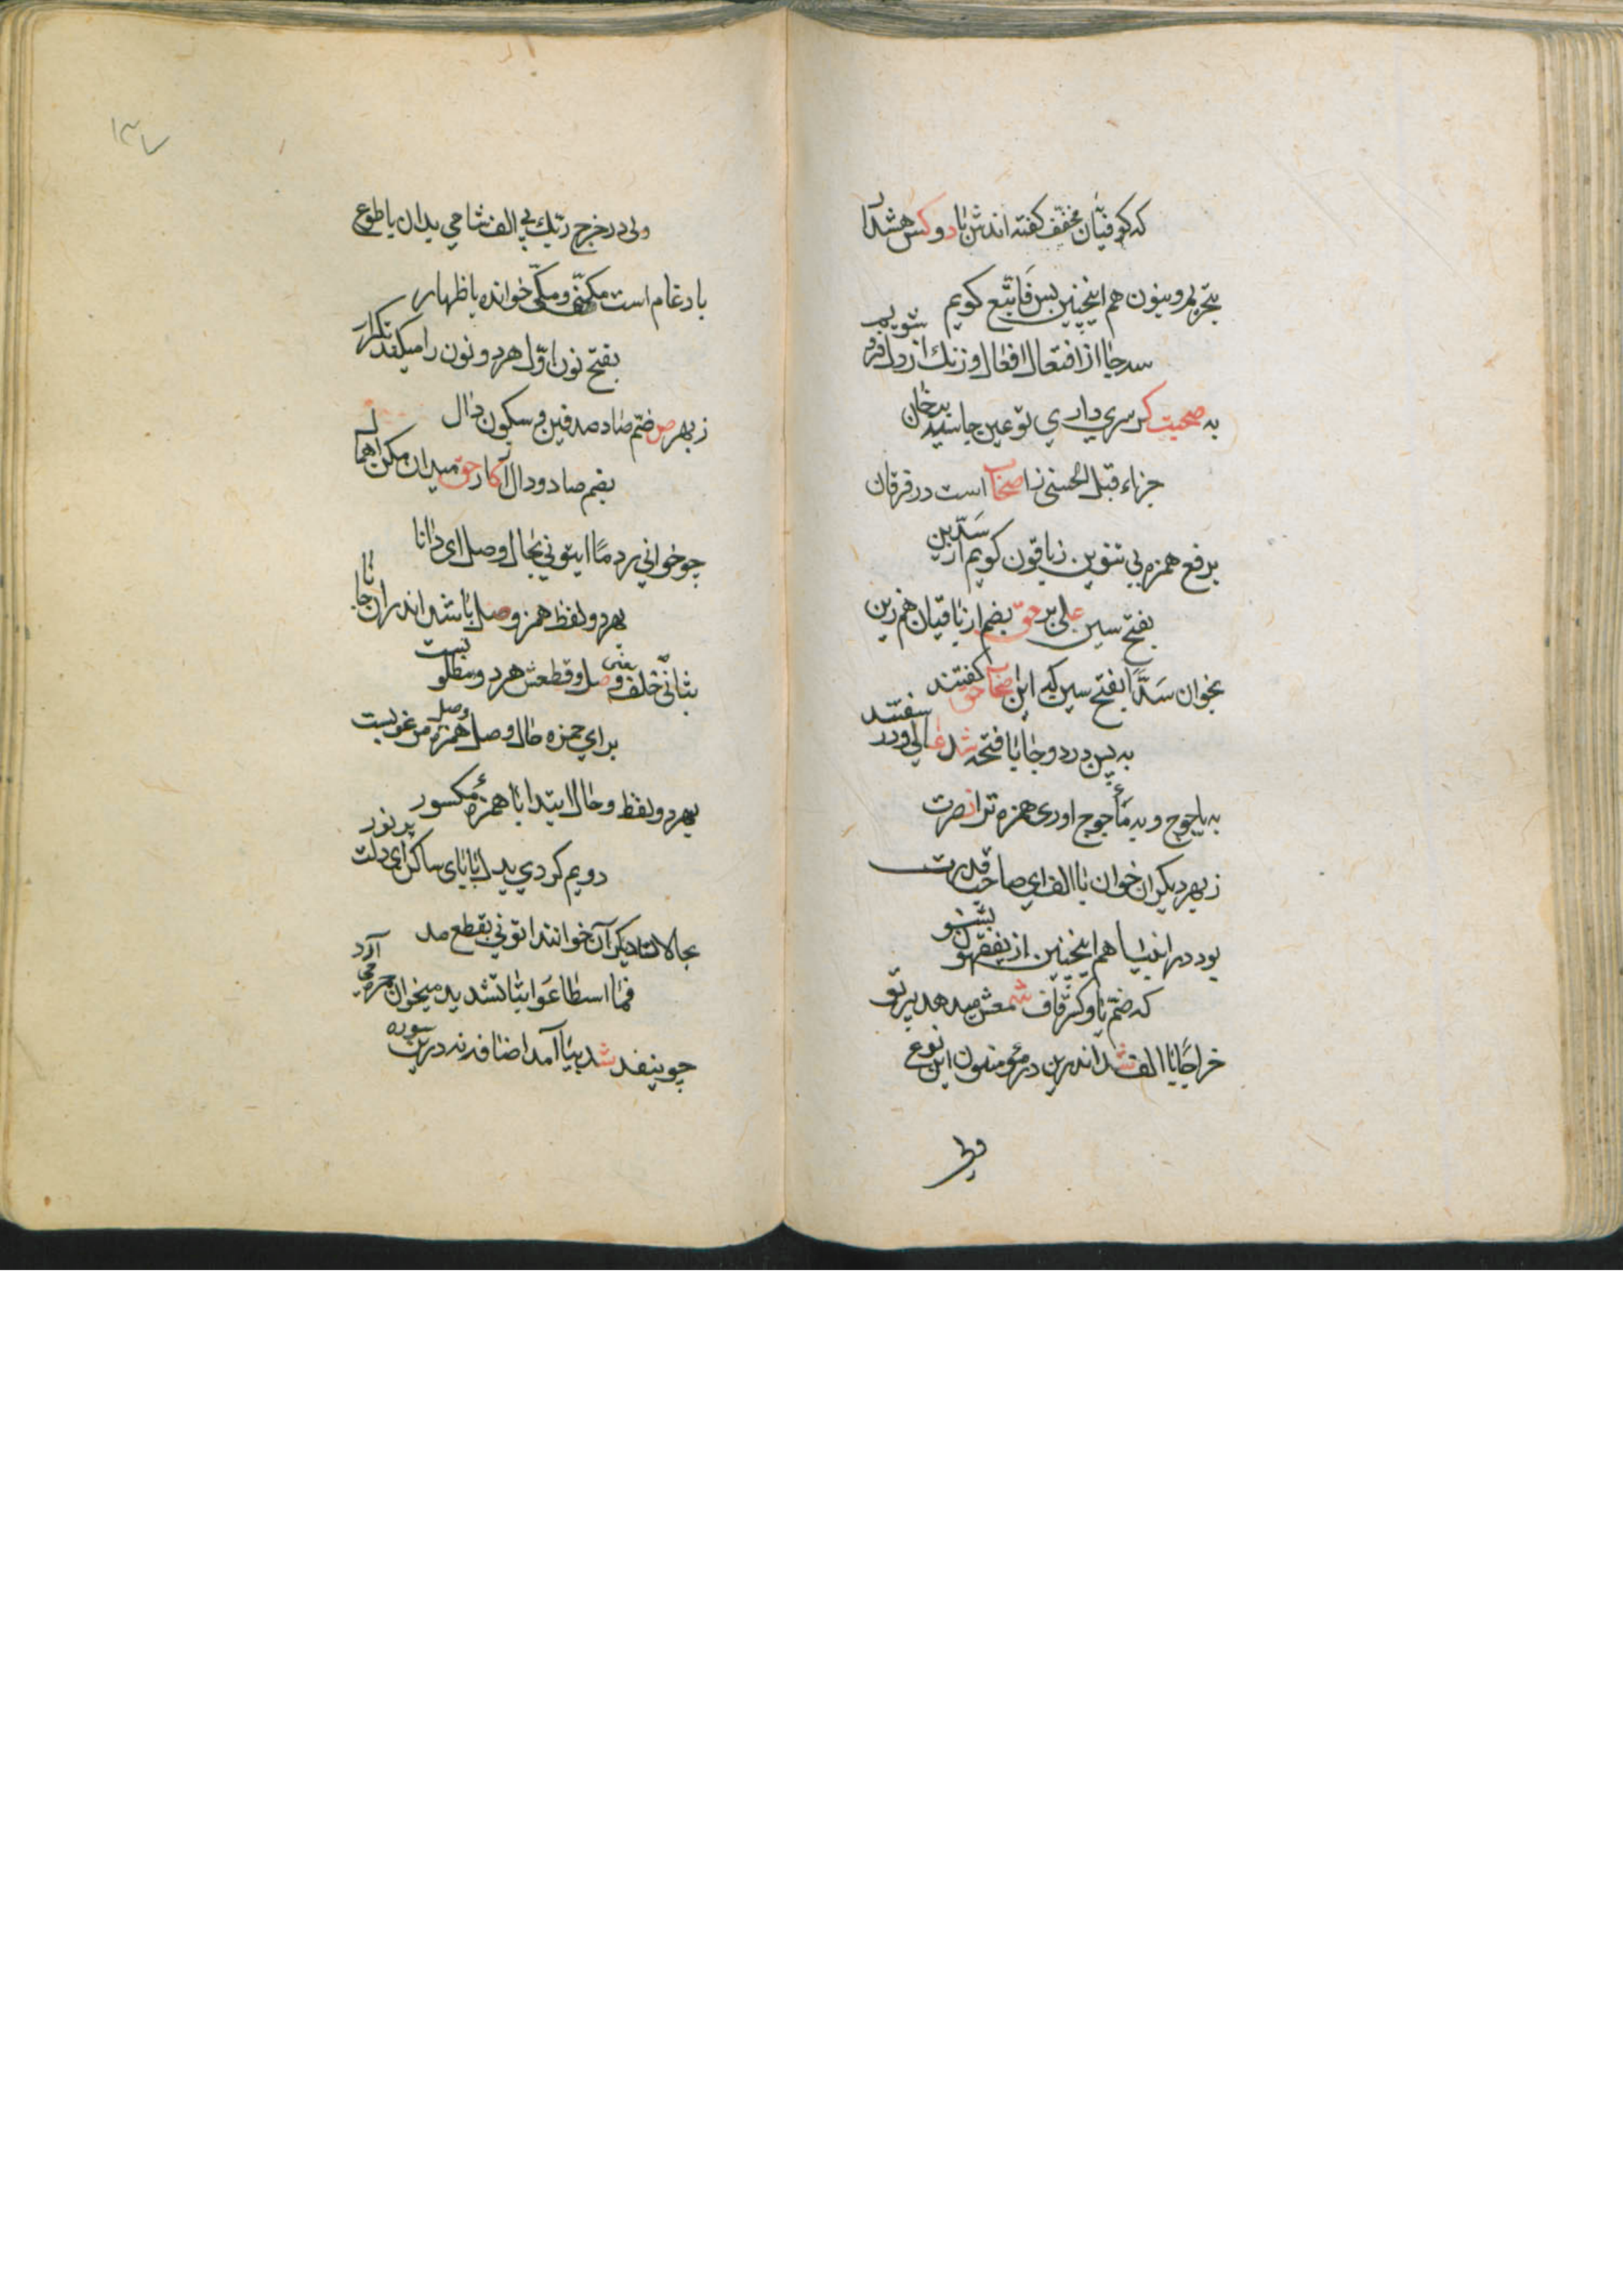 که کوفیّان مخفّف گفته اندش با دو کس هشدار
بتحریم و بنون هم اینچنین بس فَاَتْبَع گویم
سه جا از افتعال افعال و زنگ از دل فرو شویم
به صحبت گر سری داری تو عین جا سه بد خان
جزاء قبل الحسنی ز اصحاب است در فرقان
برفع همزه بی تنوین ز باقون گویم از سَدَّین
بفتح سین علی بر حق بضم از باقیان هم زین
بخوان سَدًّا بفتح سین که این اصحاب حق گفتند
به یس در دو جا با فتحه شد عالی و در سفتند
به یاجوج و به مأجوج اوری همزه تو از نصرت
ز بهر دیگران خوان با الف ای صاحب قدرت
بود در انبیا هم اینچنین از یفقهون بشنو
که ضمّ یا و کسر قاف شمعش میدهد پرتو
خراجًا با الف شد اندرین در مؤمنون این نوع
فط
۱۳۷
ولی در خرج ربّک بی الف شامی بدان با طوع
بادغام است مکنّی و مکّی خوانده با ظهار
بفتح نون اوّل هر دو نون را میکند تکرار
ز بهر ص ضمّ صاد صدفین و سکون دال
بضم صاد و دال آ کار حق میدان مکن اهمال
چو خوانی ردمًا ایتونی بحال وصل ای دانا
بهر دو لفظ همز وصل باشد اندران جا با
بثانی خلف وصل و قطعش هر دو مطلوبست
برای حمزه حال وصل همزه وصل مرغوبست
بهر دو لفظ و حال ابتدا با همزهٔ مکسور
دویم کردی بدل با یای ساکن ای دلت پر نور
بحالات دیگر آن خوانند اتونی بقطع مد
فما اسطاعوا بتا تشدید میخوان حمزه می آرد
چو ینفد شد بیا آمد اضافه نه درین سوره